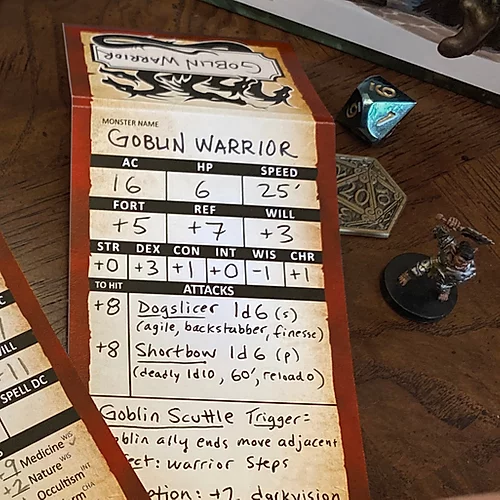 GOBLIN WARRIOR
MONSTER NAME
GOBLIN WARRIOR
AC HP SPEED
16 6 25'
FORT REF WILL
+5 +7 +3
STR DEX CON INT WIS CHR
+0 +3 +1 +0 -1 +1
TO HIT ATTACKS
+8 Dogslicer 1d6 (s)
(agile, backstabber, finesse)
+8 Shortbow 1d6 (p)
(deadly 1d10, 60', reload 0)
Goblin Scuttle Trigger:
goblin ally ends move adjacent
Effect: Warrior Steps
+2, darkvision
SPELL DC
+9 Medicine WIS
+2 Nature WIS
Occultism INT